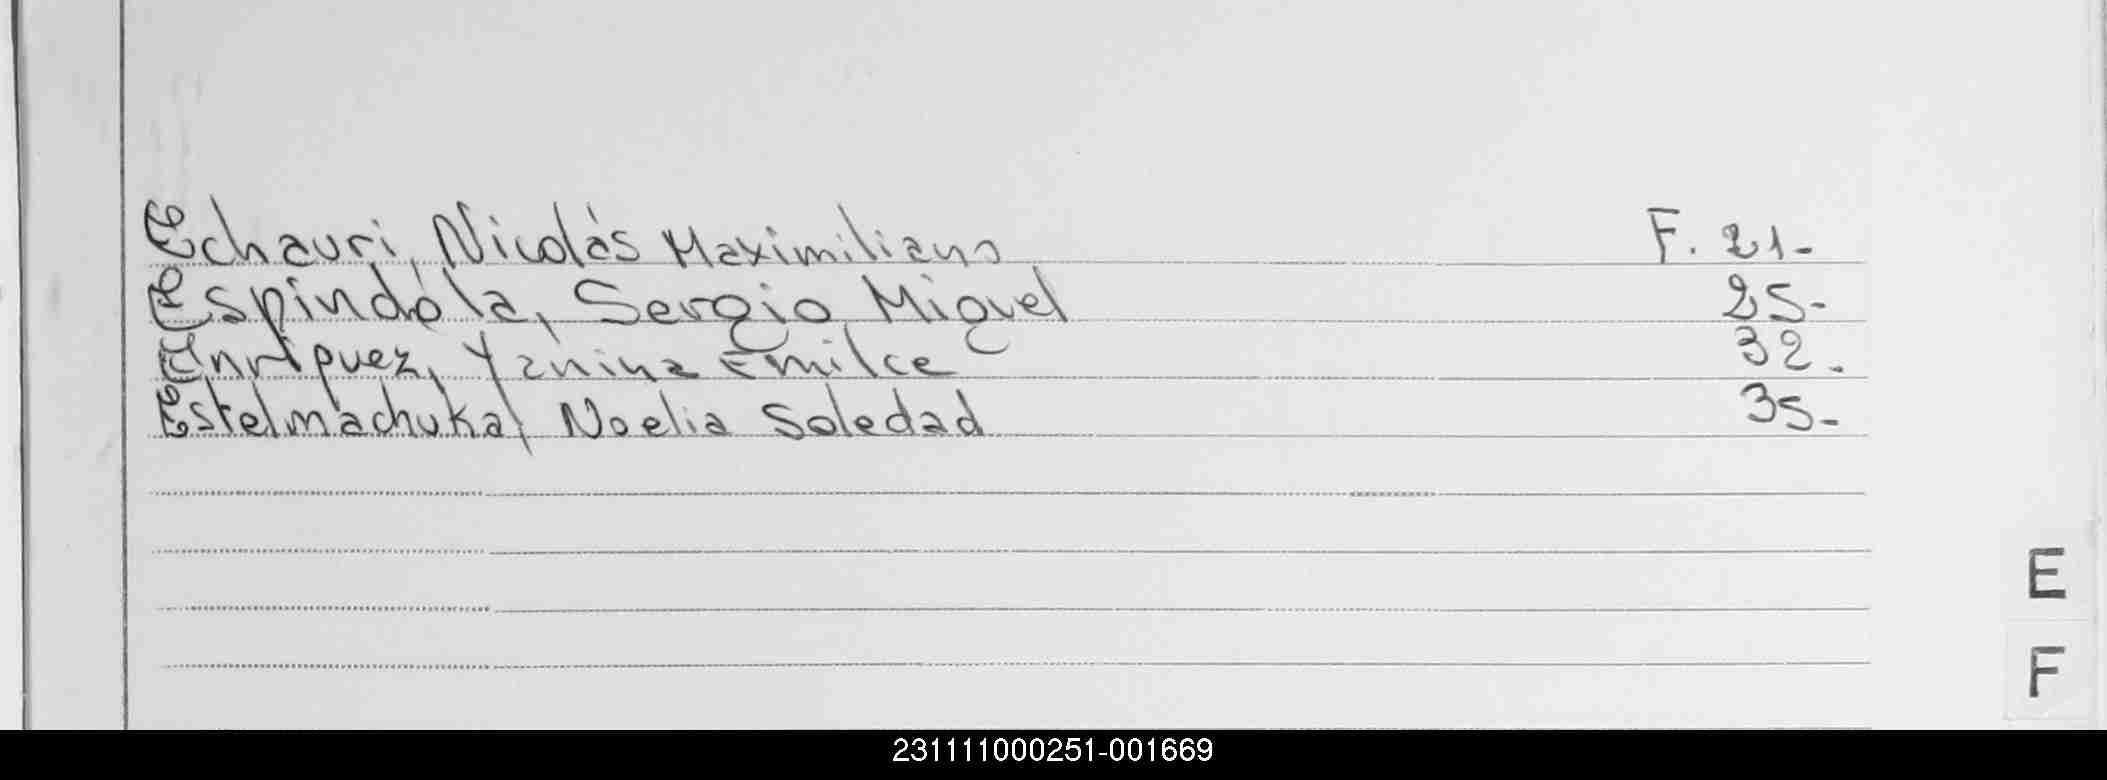 Echauri, Nicolás Maximiliano F. 21-
Espindola, Sergio Miguel 25-
Enriquez, Yanina Emilce 32.
Estelmachuka, Noelia Soledad 35-
E
F
231111000251-001669